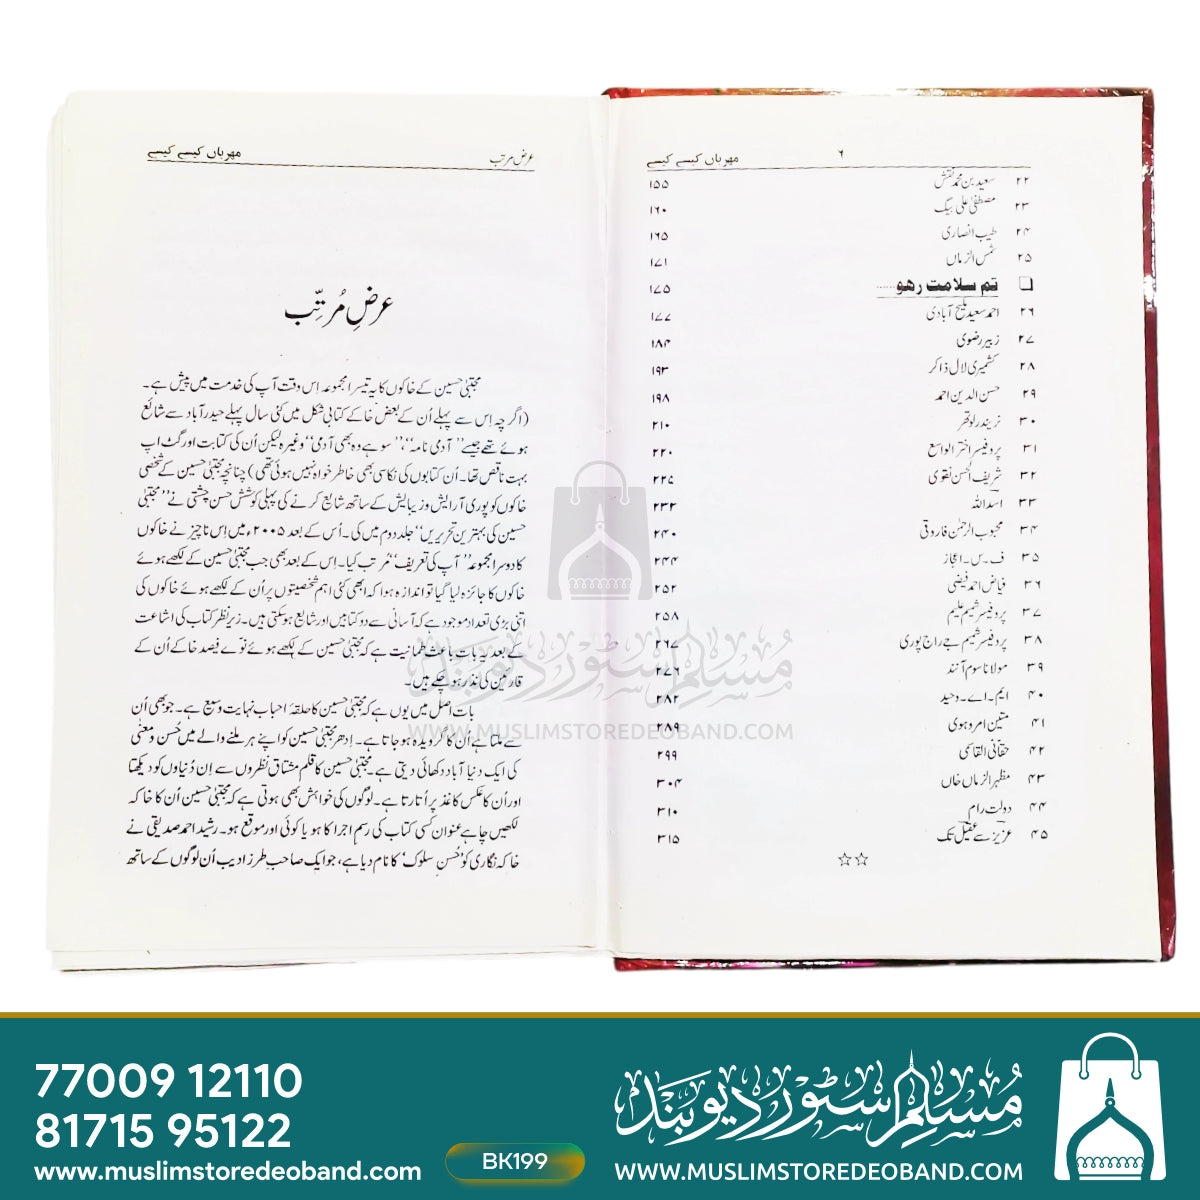 مہرباں کیسے کیسے
۶
۲۲ سعید بن محمد نقش ۱۵۵
۲۳ مصطفیٰ علی بیگ ۱۶۰
۲۴ طیب انصاری ۱۶۵
۲۵ شمس الزماں ۱۷۱
تم سلامت رھو...... ۱۷۵
۲۶ احمد سعید ملیح آبادی ۱۷۷
۲۷ زبیر رضوی ۱۸۴
۲۸ کشمیری لال ذاکر ۱۹۳
۲۹ حسن الدین احمد ۱۹۸
۳۰ نریندر لوتھر ۲۱۰
۳۱ پروفیسر اختر الواسع ۲۲۰
۳۲ شریف الحسن نقوی ۲۲۵
۳۳ اسد اللہ ۲۳۳
۳۴ محبوب الرحمٰن فاروقی ۲۴۰
۳۵ ف۔س۔اعجاز ۲۴۴
۳۶ فیاض احمد فیضی ۲۵۲
۳۷ پروفیسر شمیم علیم ۲۵۸
۳۸ پروفیسر شمیم جے راج پوری ۲۶۷
۳۹ مولانا سوم آنند ۲۷۶
۴۰ ایم۔اے۔وحید ۲۸۲
۴۱ متین امروہوی ۲۸۹
۴۲ حقانی القاسمی ۲۹۹
۴۳ مظہر الزماں خاں ۳۰۴
۴۴ دولت رام ۳۱۰
۴۵ عزیز سے عقیل تک ۳۱۵
☆☆
عرض مرتب
مہرباں کیسے کیسے
عرضِ مُرتِّب
مجتبیٰ حسین کے خاکوں کا یہ تیسرا مجموعہ اِس وقت آپ کی خدمت میں پیش ہے۔
(اگرچہ اِس سے پہلے اُن کے بعض خاکے کتابی شکل میں کئی سال پہلے حیدرآباد سے شائع
ہوئے تھے جیسے ”آدمی نامہ“، ”سو ہے وہ بھی آدمی“ وغیرہ لیکن اُن کی کتابت اور گٹ اپ
بہت ناقص تھا۔ اُن کتابوں کی نکاسی بھی خاطر خواہ نہیں ہوئی تھی) چنانچہ مجتبیٰ حسین کے شخصی
خاکوں کو پوری آرایش و زیبایش کے ساتھ شایع کرنے کی پہلی کوشش حسن چشتی نے ”مجتبیٰ
حسین کی بہترین تحریریں“ جلد دوم میں کی۔ اُس کے بعد ۲۰۰۵ء میں اِس ناچیز نے خاکوں
کا دوسرا مجموعہ ”آپ کی تعریف“ مُرتب کیا۔ اِس کے بعد بھی جب مجتبیٰ حسین کے لکھے ہوئے
خاکوں کا جائزہ لیا گیا تو اندازہ ہوا کہ ابھی کئی اہم شخصیتوں پر اُن کے لکھے ہوئے خاکوں کی
اتنی بڑی تعداد موجود ہے کہ آسانی سے دو کتابیں اور شایع ہو سکتی ہیں۔ زیرِ نظر کتاب کی اشاعت
کے بعد یہ بات باعثِ طمانیت ہے کہ مجتبیٰ حسین کے لکھے ہوئے نوّے فیصد خاکے اُن کے
قارئین کی نذر ہو چکے ہیں۔
بات اصل میں یوں ہے کہ مجتبیٰ حسین کا حلقۂ احباب نہایت وسیع ہے۔ جو بھی اُن
سے ملتا ہے اُن کا گرویدہ ہو جاتا ہے۔ اِدھر مجتبیٰ حسین کو اپنے ہر ملنے والے میں حُسن و معنٰی
کی ایک دنیا آباد دکھائی دیتی ہے۔ مجتبیٰ حسین کا قلم مشتاق نظروں سے اِن دُنیاوں کو دیکھتا
اور اُن کا عکس کاغذ پر اُتارتا ہے۔ لوگوں کی خواہش بھی ہوتی ہے کہ مجتبیٰ حسین اُن کا خاکہ
لکھیں چاہے عنوان کسی کتاب کی رسمِ اجرا کا ہو یا کوئی اور موقع ہو۔ رشید احمد صدیقی نے
خاکہ نگاری کو ’حُسنِ سلوک‘ کا نام دیا ہے، جو ایک صاحبِ طرز ادیب اُن لوگوں کے ساتھ
مُسلِم سٹور دیوبند
WWW.MUSLIMSTOREDEOBAND.COM
77009 12110
81715 95122
www.muslimstoredeoband.com
BK199
مُسلِم سٹور دیوبند
WWW.MUSLIMSTOREDEOBAND.COM